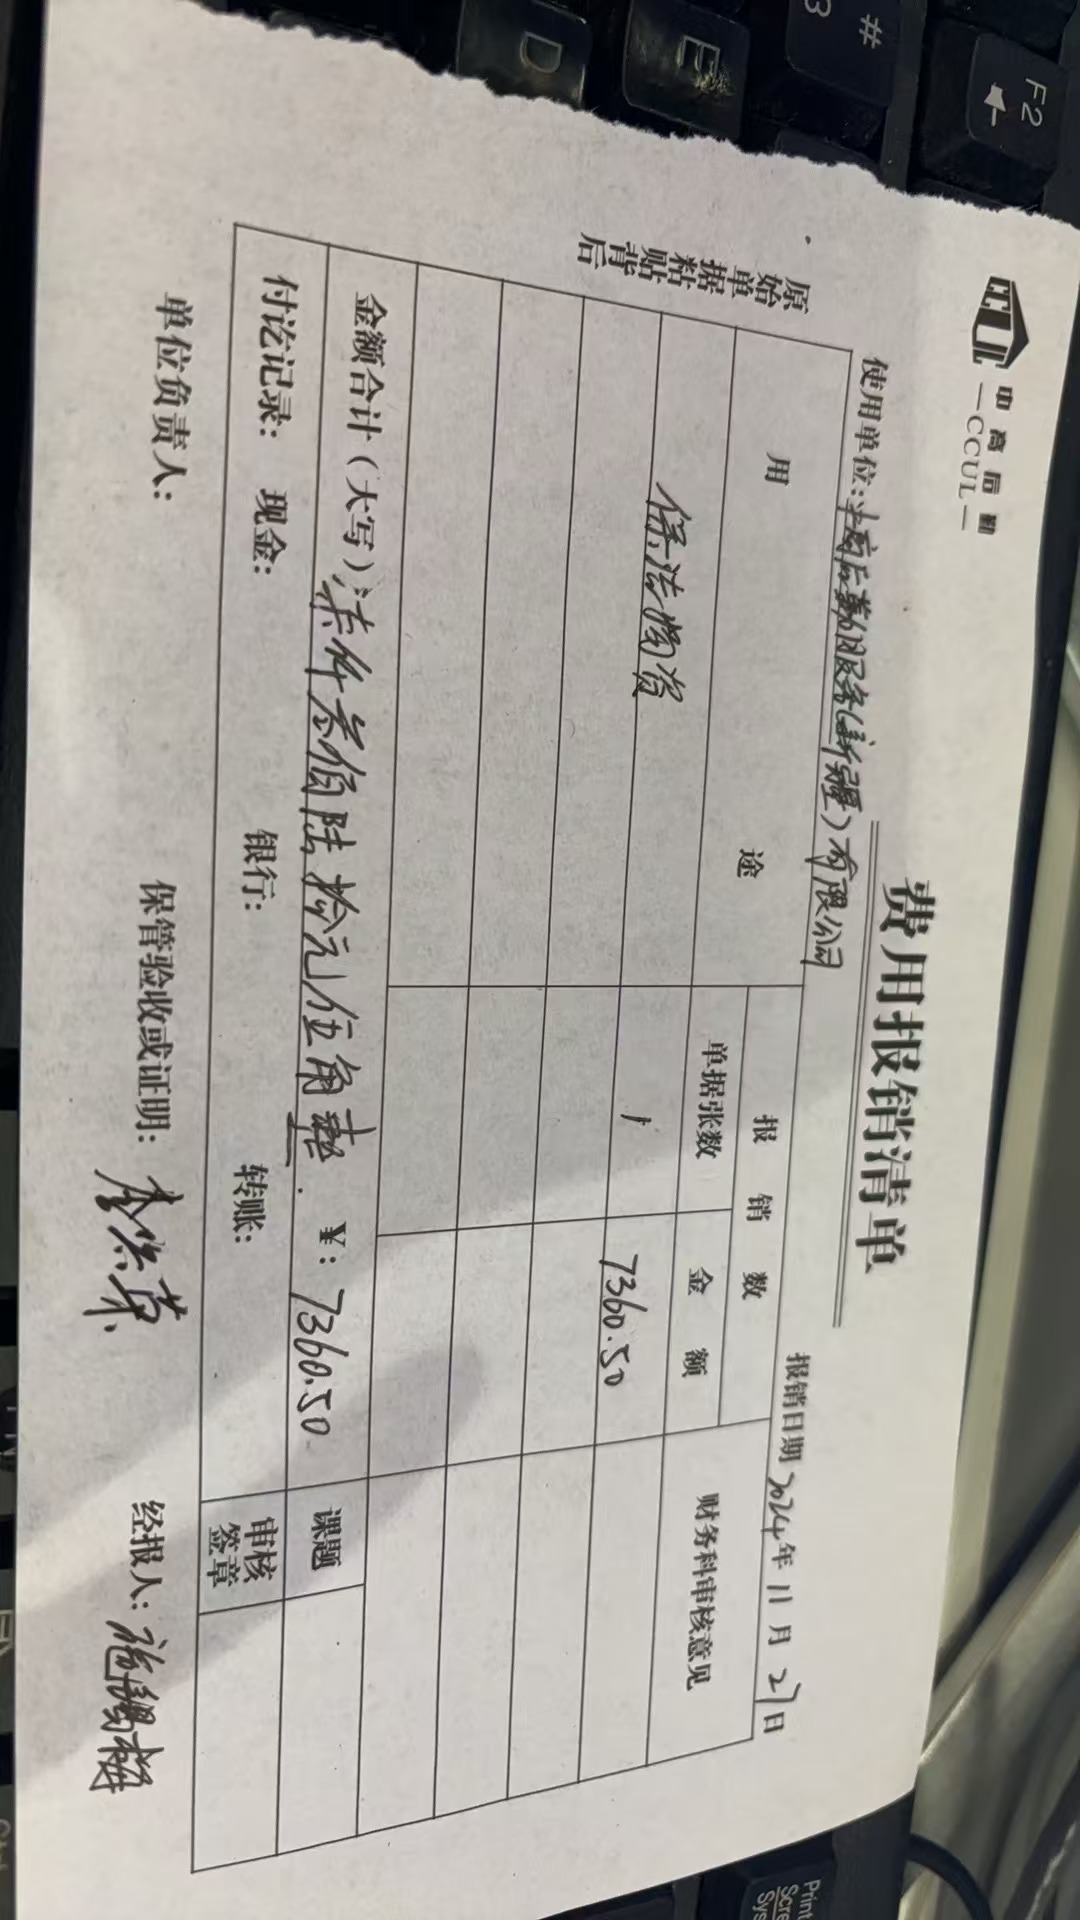 中高后勤
—CCUL—
费用报销清单
使用单位:中高后勤服务(新疆)有限公司
报销日期2024年11月27日
原始单据粘贴背后
用途
报销数
财务科审核意见
单据张数
金额
保洁物资
1
7360.50
金额合计(大写):柒仟叁佰陆拾元伍角整.
¥:7360.50
课题
付讫记录: 现金: 银行: 转账:
审核签章
单位负责人:
保管验收或证明:
经报人:
F2
#
3
E
D
Print
Scre
Sys